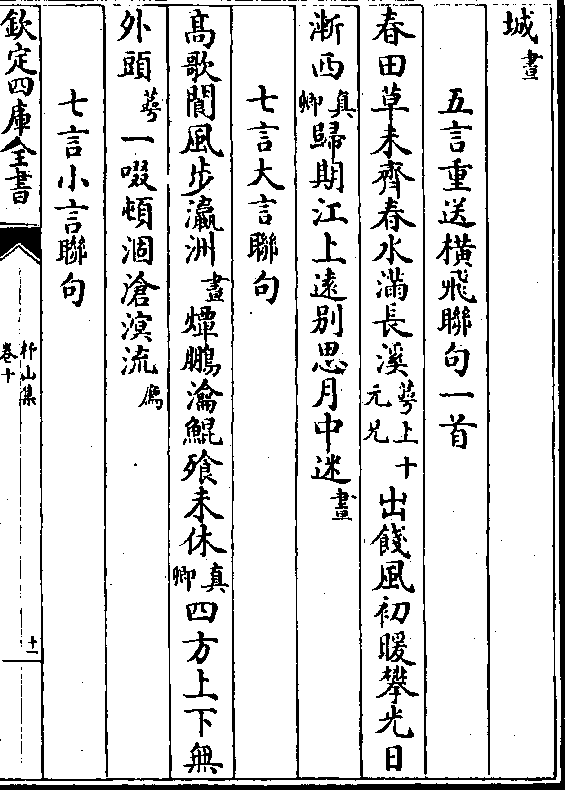 城晝
五言重送橫飛聯句一首
春田草未齊春水滿長溪萼上十元兄出餞風初暖攀光日
漸西真卿歸期江上遠別思月中迷晝
七言大言聯句
高歌閬風步瀛洲晝燂鵬瀹鯤飱未休真卿四方上下無
外頭萼一啜頓涸滄溟流廌
七言小言聯句
欽定四庫全書
杼山集
卷十
十一